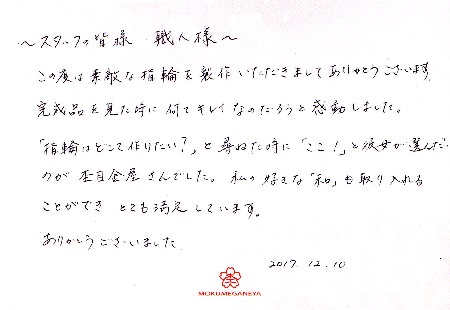 ～スタッフの皆様 職人様～
この度は素敵な指輪を製作いただきましてありがとうございます
完成品を見た時に何てキレイなのだろうと感動しました。
「指輪はどこで作りたい?」と尋ねた時に「ここ!」と彼女が選んだ
のが杢目金屋さんでした。私の好きな「和」も取り入れる
ことができ とても満足しています。
ありがとうございました
2017.12.10
MOKUMEGANEYA